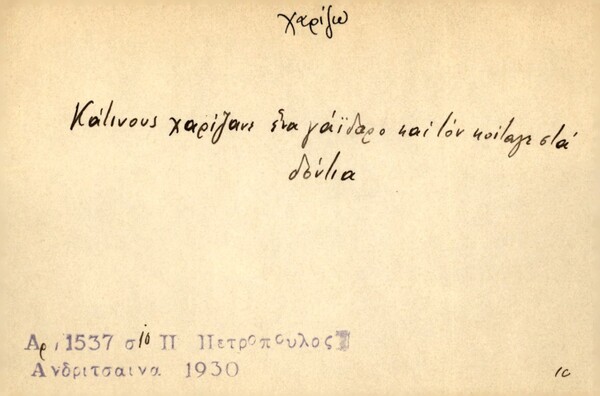 χαρίζω
Κάτινους χαρίζανε ἕνα γάϊδαρο καί τόν κοίταζε στά
δόντια
Αρ, 1537 σ10 Π Πετροπουλος
Ανδριτσαινα 1930
10